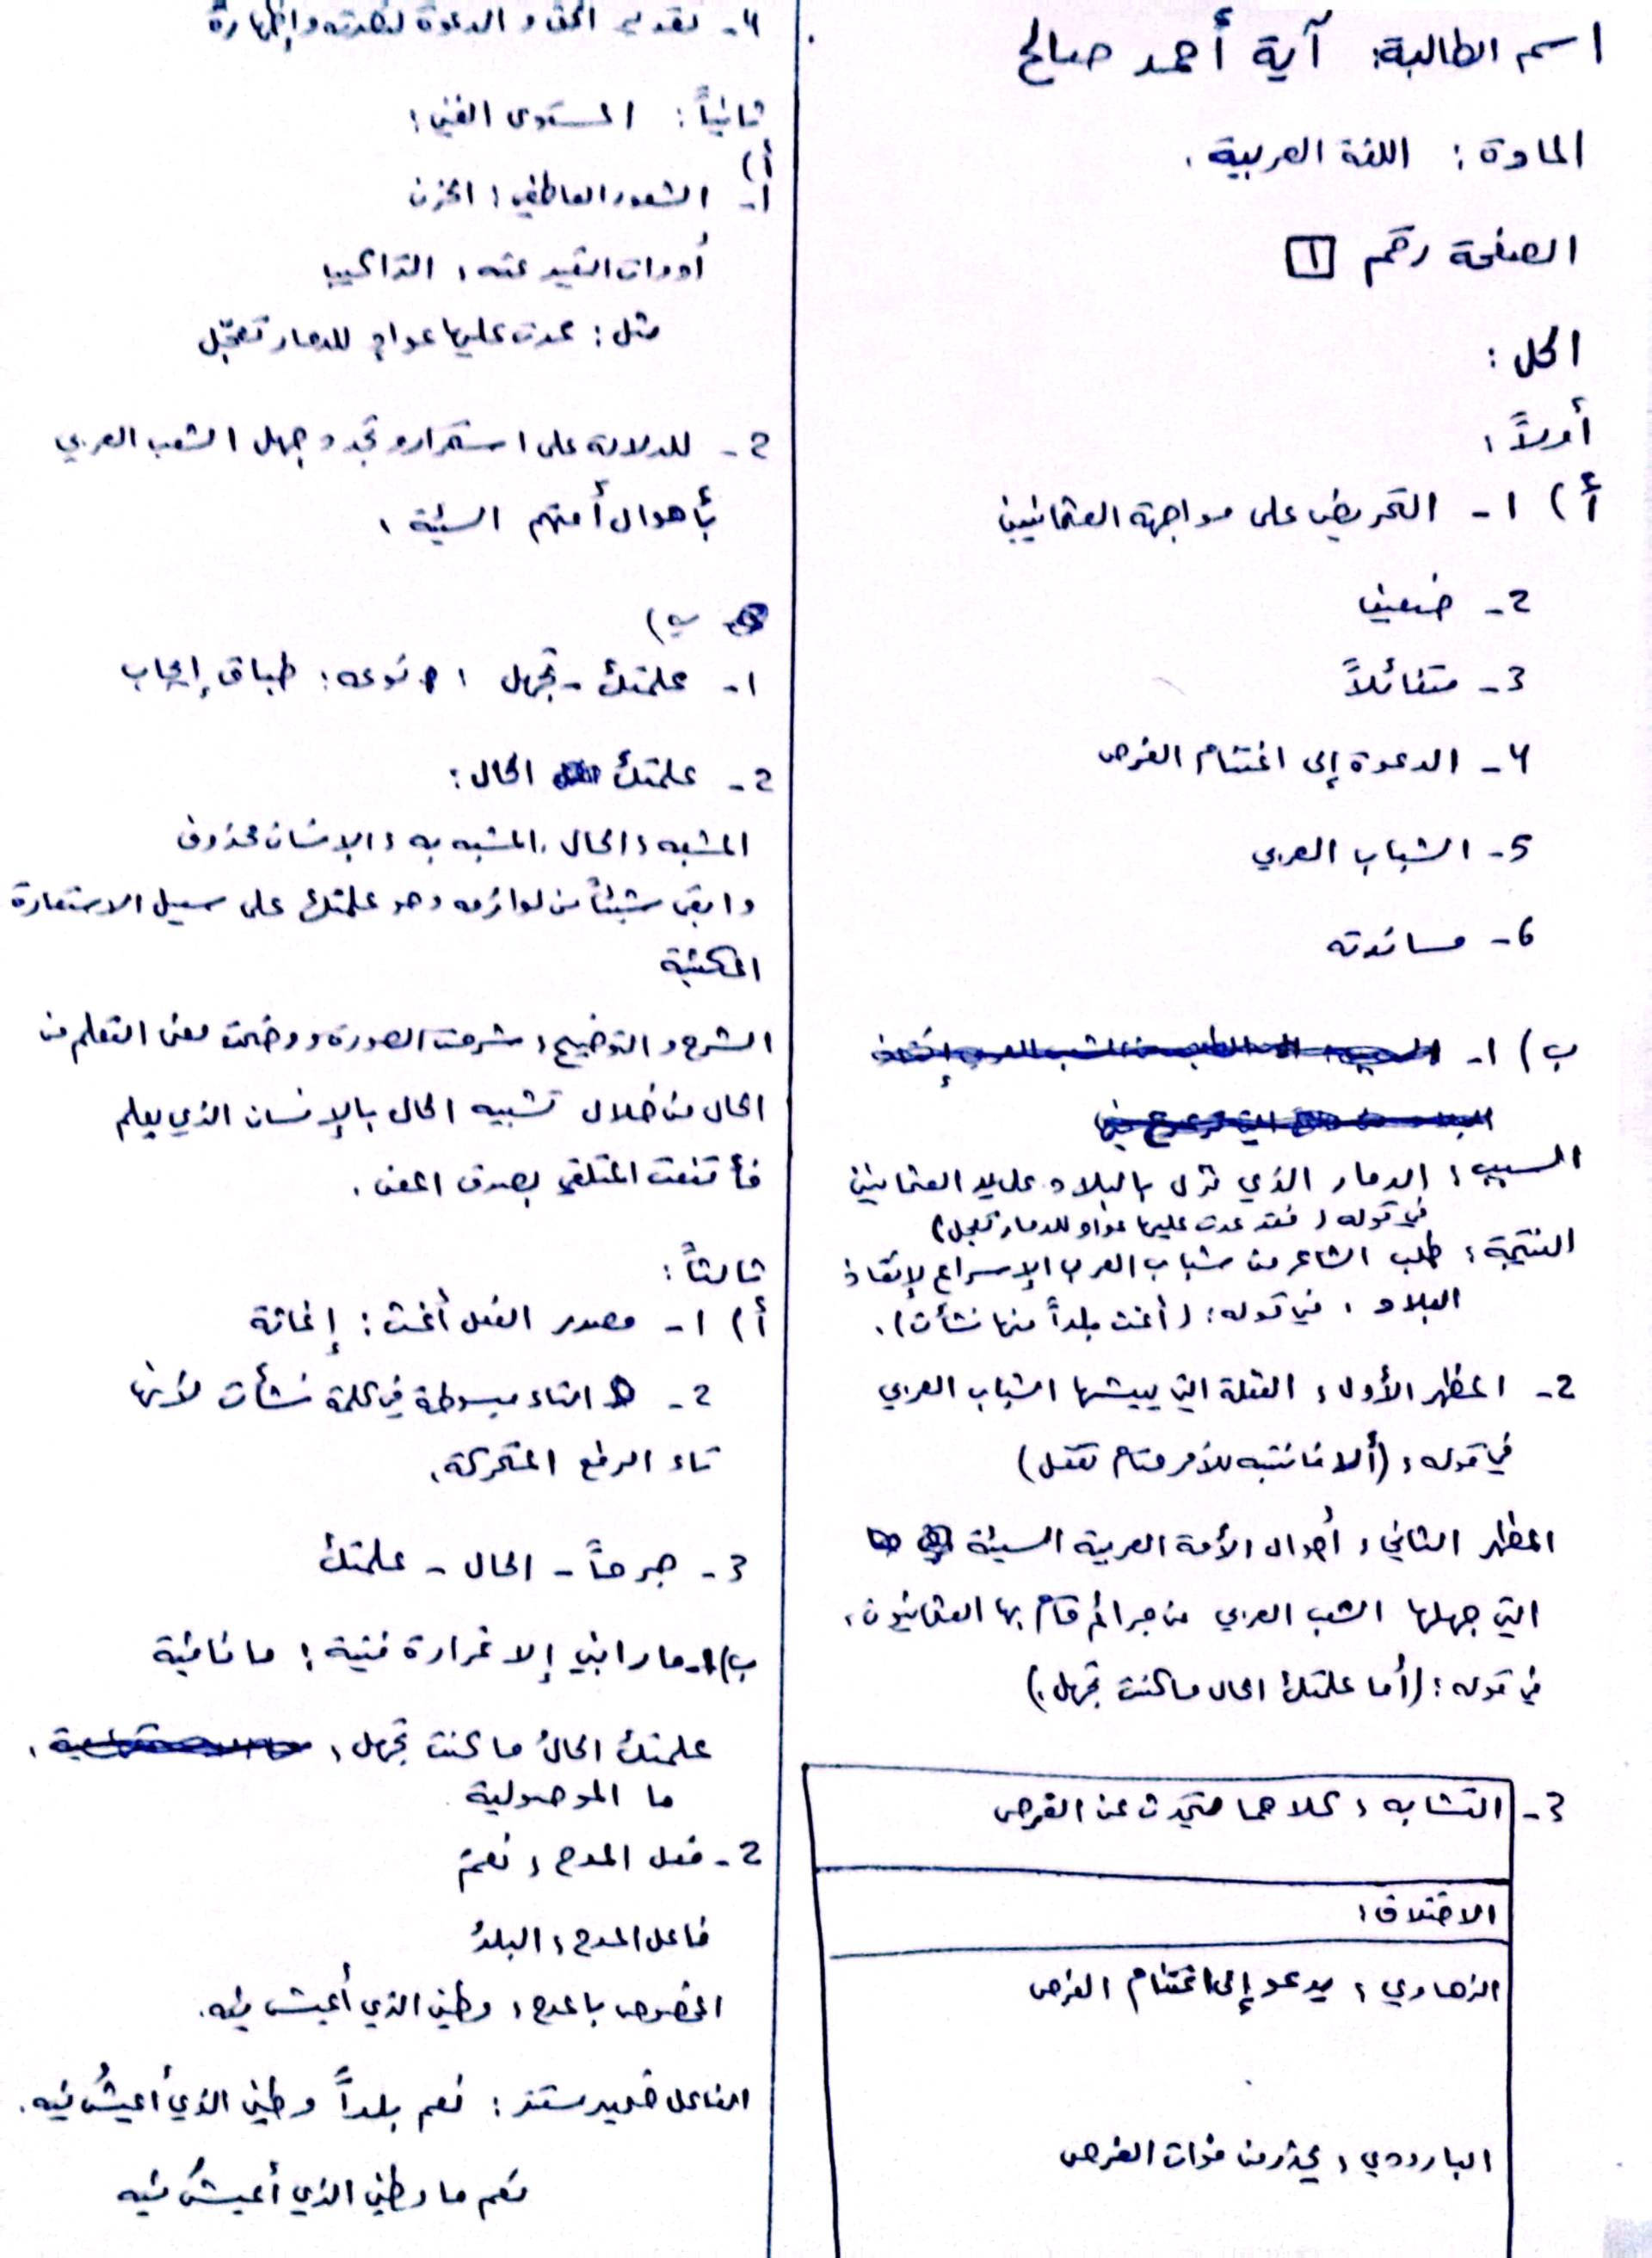 اسم الطالبة: آية أحمد صالح
المادة: اللغة العربية.
الصفحة رقم ١
الحل:
أولاً:
أ) ١- التحريض على مواجهة العثمانيين
2- ضعيفا
3- متفائلاً
4- الدعوة إلى اغتنام الفرص
5- الشباب العربي
6- مساندته
ب) ١-
السبب: الدمار الذي نزل بالبلاد على يد العثمانيين
في قوله (فقد عدت عليها عواد للدمار تعجل)
النتيجة: طلب الشاعر من شباب العرب الإسراع لإنقاذ
البلاد. في قوله: (أغث بلداً منها نشأت).
2- المظهر الأول: الغفلة التي يعيشها الشباب العربي
في قوله: (ألا فانتبه للأمر حتام تغفل)
المظهر الثاني: أحوال الأمة العربية السيئة
التي جهلها الشعب العربي من جرائم قام بها العثمانيون.
في قوله: (أما علمتك الحال ما كنت تجهل.)
3- التشابه: كلاهما متحدث عن الفرص
الاختلاف:
الزهاوي: يدعو إلى اغتنام الفرص
البارودي: يحذر من فوات الفرص
4- تقديم الحق و الدعوة لنصرته وإظهاره
ثانياً: المستوى الفني:
أ)
١- الشعور العاطفي: الحزن
أدوات التعبير عنه: التراكيب
مثل: عدت عليها عوادٍ للدمار تعجّل
2- للدلالة على استمرار وتجدد جهل الشعب العربي
بأهوال أمتهم السيئة.
ب)
١- علمتك - تجهل: نوعه: طباق إيجاب
2- علمتك الحال:
المشبه: الحال. المشبه به: الإنسان محذوف
وابقى شيئاً من لوازمه وهو علمتك على سبيل الاستعارة
المكنية
الشرح و التوضيح: شرحت الصورة ووضحت معنى التعلم من
الحال من خلال تشبيه الحال بالإنسان الذي يعلم
فأقنعت المتلقي بصدق المعنى.
ثالثاً:
أ) ١- مصدر الفعل أغث: إغاثة
2- التاء مبسوطة في كلمة نشأت لأنها
تاء الرفع المتحركة.
3- جرحاً - الحال - علمتك
ب) ١- ما رابني إلا غرارة فتية: ما نافية
علمتك الحالُ ما كنت تجهل:
ما الموصولية
2- فعل المدح: نعمَ
فاعل المدح: البلدُ
المخصوص بالمدح: وطني الذي أعيش فيه.
الفاعل ضمير مستتر: نعم بلداً وطني الذي أعيشُ فيه.
نعم ما وطني الذي أعيشُ فيه